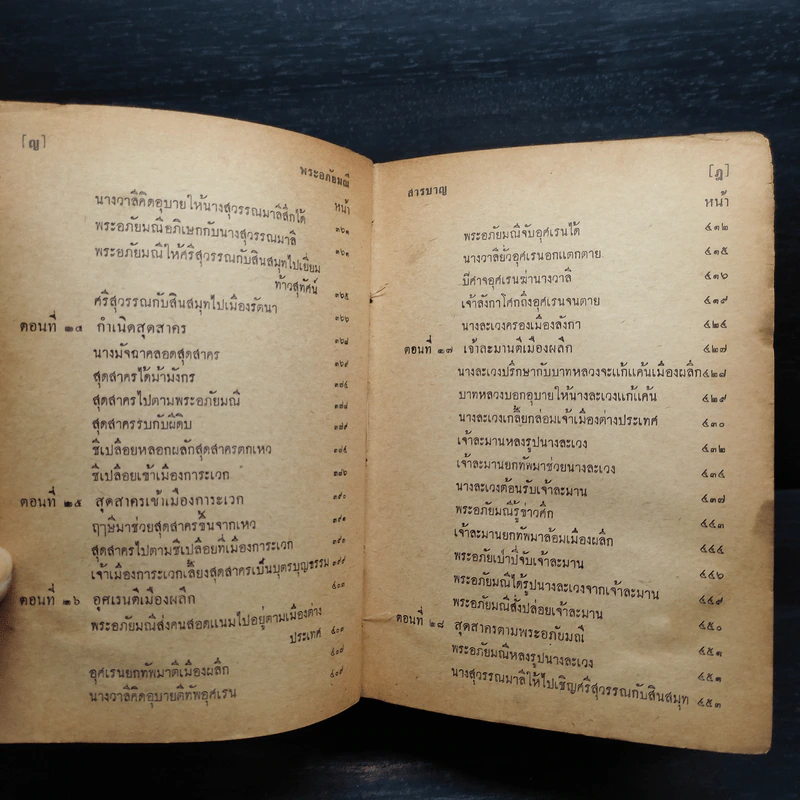 [ญ]
พระอภัยมณี
หน้า
นางวาลีคิดอุบายให้นางสุวรรณมาลีสึกได้ ๓๖๑
พระอภัยมณีอภิเษกกับนางสุวรรณมาลี ๓๖๑
พระอภัยมณีให้ศรีสุวรรณกับสินสมุทไปเยี่ยม
ท้าวสุทัศน์ ๓๖๕
ศรีสุวรรณกับสินสมุทไปเมืองรัตนา ๓๖๖
ตอนที่ ๒๔ กำเนิดสุดสาคร ๓๖๘
นางมัจฉาคลอดสุดสาคร ๓๖๙
สุดสาครได้ม้ามังกร
สุดสาครไปตามพระอภัยมณี
สุดสาครรบกับผีดิบ
ชีเปลือยหลอกผลักสุดสาครตกเหว
ชีเปลือยเข้าเมืองการะเวก
ตอนที่ ๒๕ สุดสาครเข้าเมืองการะเวก ๓๙๐
ฤๅษีมาช่วยสุดสาครขึ้นจากเหว
สุดสาครไปตามชีเปลือยที่เมืองการะเวก
เจ้าเมืองการะเวกเลี้ยงสุดสาครเป็นบุตรบุญธรรม ๓๙๙
ตอนที่ ๒๖ อุศเรนตีเมืองผลึก ๔๐๓
พระอภัยมณีส่งคนสอดแนมไปอยู่ตามเมืองต่าง
ประเทศ ๔๐๓
อุศเรนยกทัพมาตีเมืองผลึก ๔๐๗
นางวาลีคิดอุบายตีทัพอุศเรน ๔๐๙
สารบาญ
[ฎ]
หน้า
พระอภัยมณีจับอุศเรนได้ ๔๑๒
นางวาลียั่วอุศเรนอกแตกตาย ๔๑๕
ปีศาจอุศเรนฆ่านางวาลี ๔๑๖
เจ้าลังกาโศกถึงอุศเรนจนตาย ๔๑๙
นางละเวงครองเมืองลังกา ๔๒๔
ตอนที่ ๒๗ เจ้าละมานตีเมืองผลึก ๔๒๗
นางละเวงปรึกษากับบาทหลวงจะแก้แค้นเมืองผลึก ๔๒๗
บาทหลวงบอกอุบายให้นางละเวงแก้แค้น ๔๒๙
นางละเวงเกลี้ยกล่อมเจ้าเมืองต่างประเทศ ๔๓๐
เจ้าละมานหลงรูปนางละเวง ๔๓๒
เจ้าละมานยกทัพมาช่วยนางละเวง ๔๓๔
นางละเวงต้อนรับเจ้าละมาน ๔๓๗
พระอภัยมณีรู้ข่าวศึก ๔๔๓
เจ้าละมานยกทัพมาล้อมเมืองผลึก ๔๔๔
พระอภัยเป่าปี่จับเจ้าละมาน ๔๔๖
พระอภัยมณีได้รูปนางละเวงจากเจ้าละมาน ๔๔๙
พระอภัยมณีสั่งปล่อยเจ้าละมาน ๔๕๐
ตอนที่ ๒๘ สุดสาครตามพระอภัยมณี ๔๕๑
พระอภัยมณีหลงรูปนางละเวง ๔๕๑
นางสุวรรณมาลีให้ไปเชิญศรีสุวรรณกับสินสมุท ๔๕๓